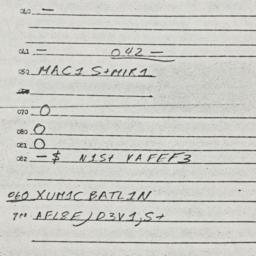 040 —
041 — 042 —
052 MAC1 S+MIR1
070 O
080 O
081 O
082 —$ N1S+ VAFEF3
060 XUM1C BATL1N
AFL8E) D3V1,S+